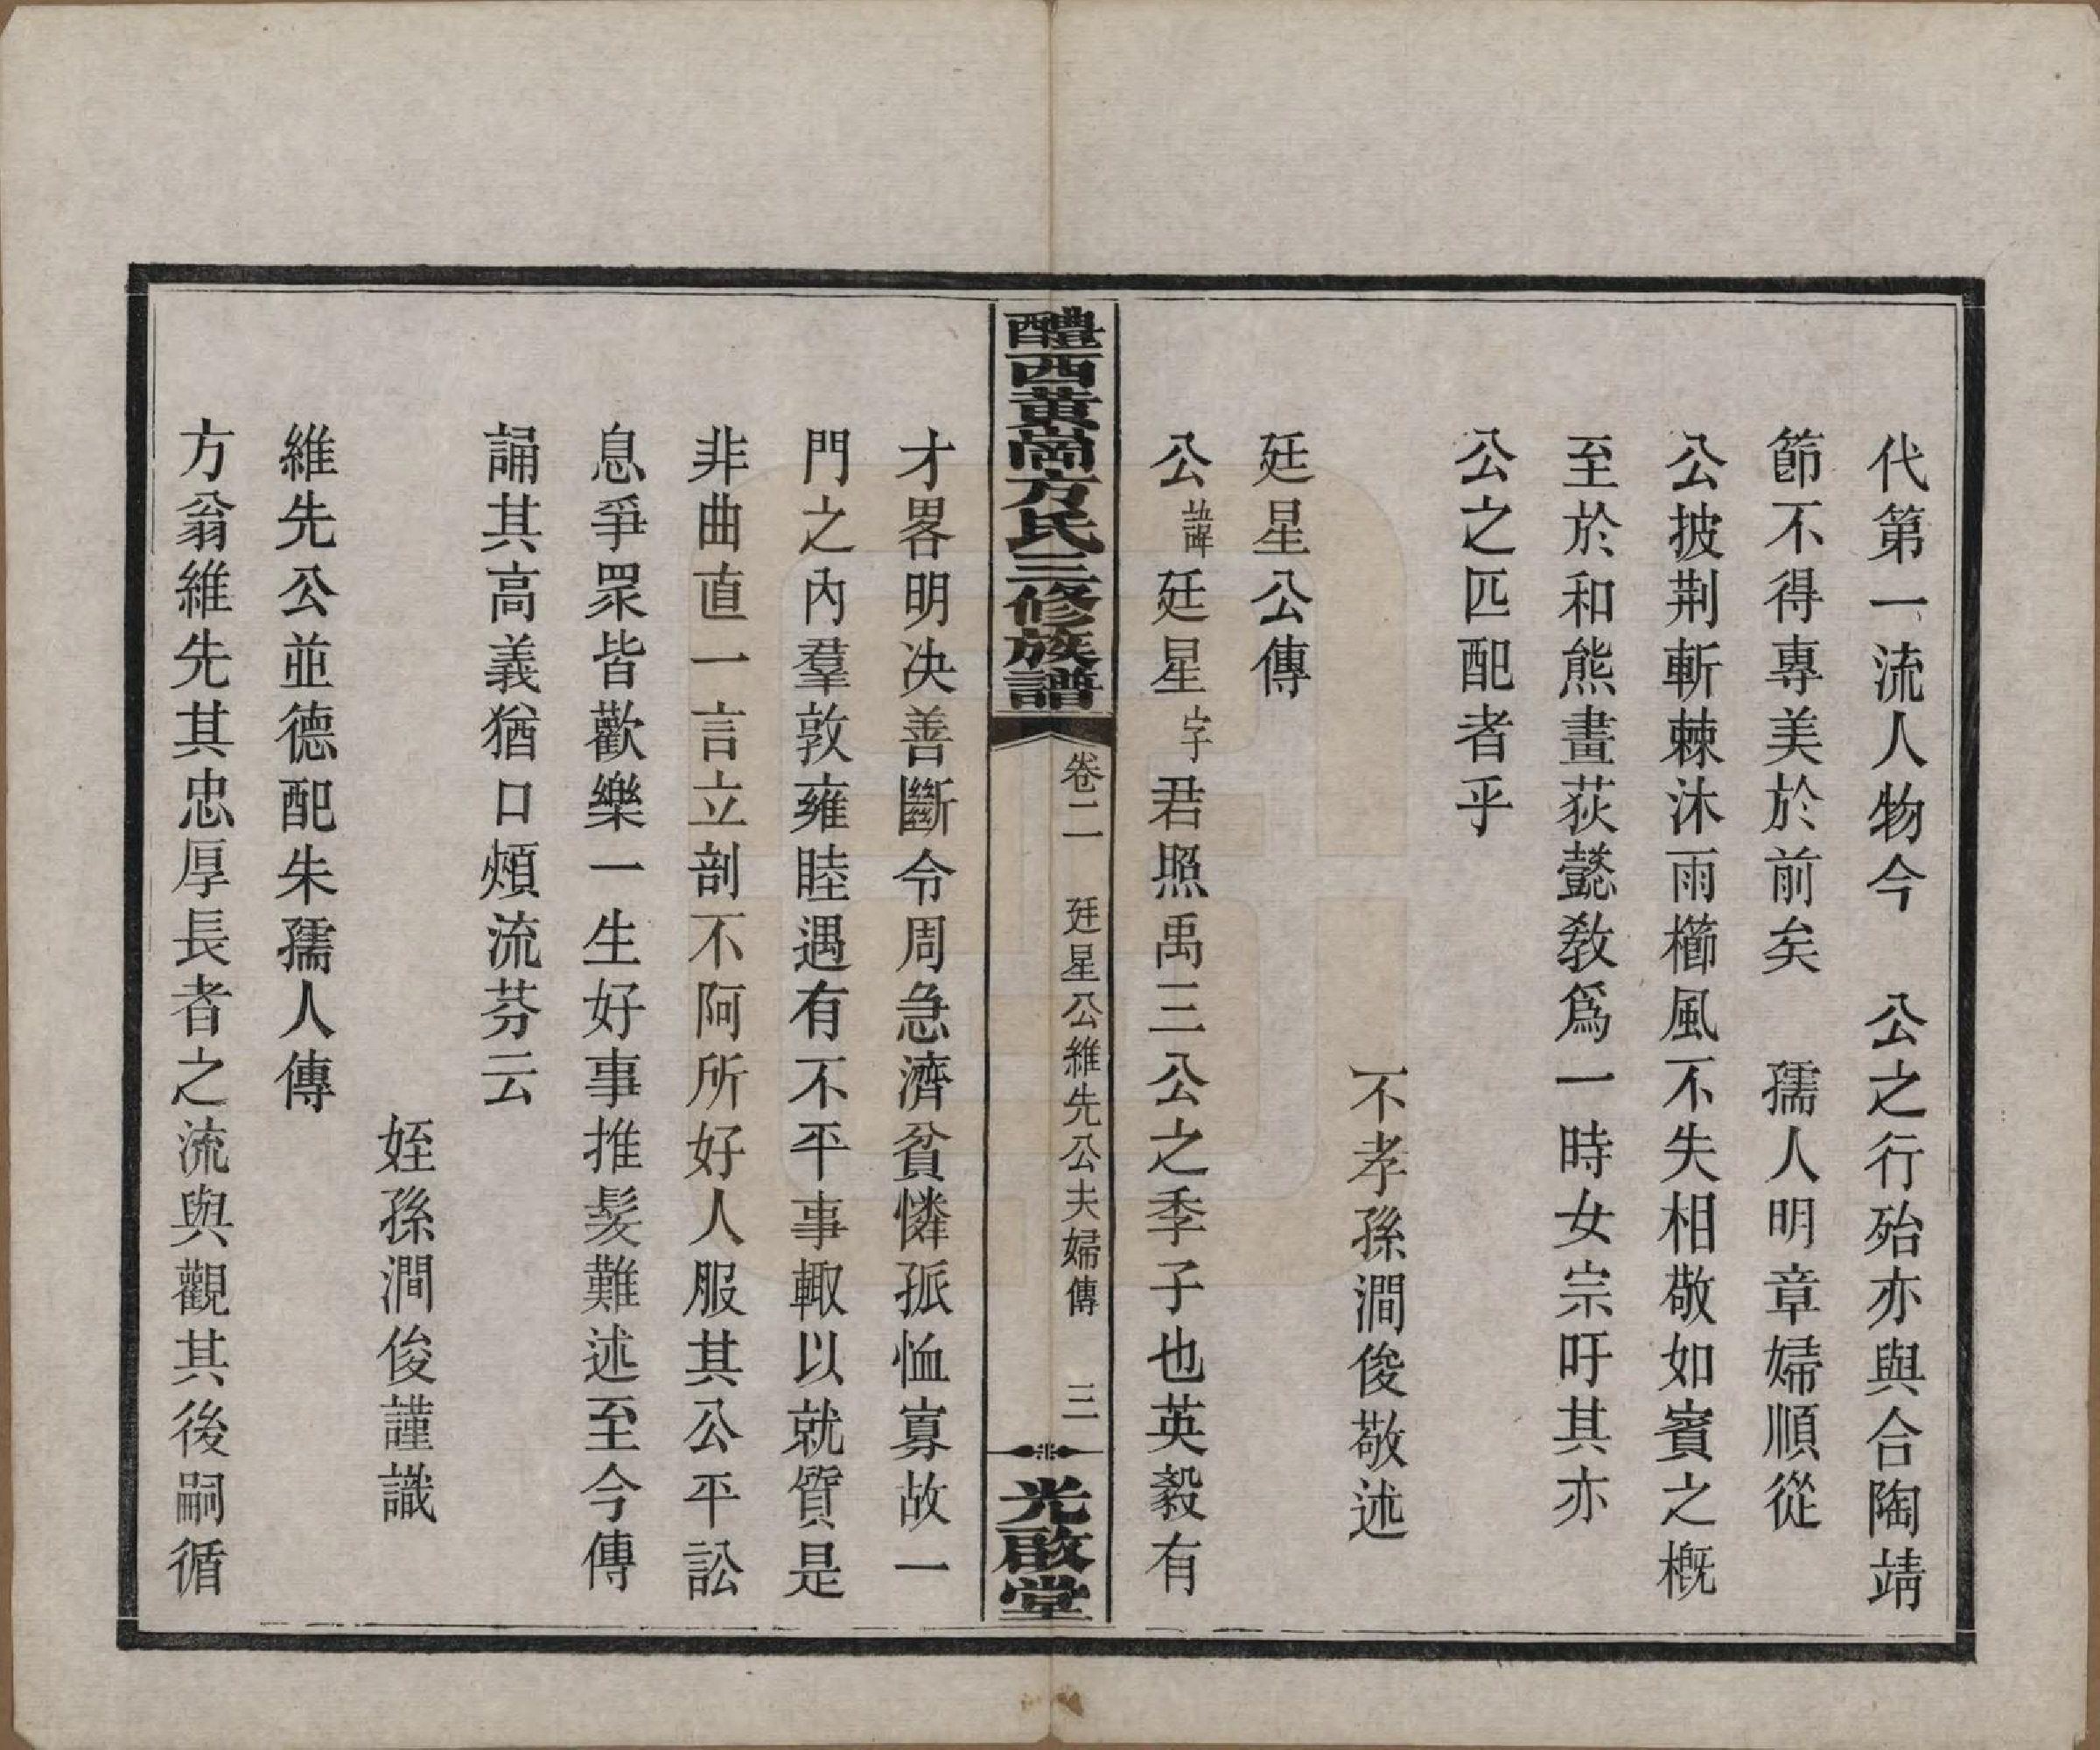 代第一流人物今　公之行殆亦與合陶靖
節不得專美於前矣　孺人明章婦順從
公披荆斬棘沐雨櫛風不失相敬如賓之概
至於和熊畫荻懿教爲一時女宗吁其亦
公之匹配者乎
不孝孫澗俊敬述
廷星公傳
公諱廷星字君照禹三公之季子也英毅有
醴西黃崗方氏三修族譜
卷二　廷星公維先公夫婦傳　三
光啟堂
才畧明決善斷令周急濟貧憐孤恤寡故一
門之內羣敦雍睦遇有不平事輙以就質是
非曲直一言立剖不阿所好人服其公平訟
息爭眾皆歡樂一生好事推髮難述至今傳
誦其高義猶口頰流芬云
姪孫澗俊謹識
維先公並德配朱孺人傳
方翁維先其忠厚長者之流與觀其後嗣循